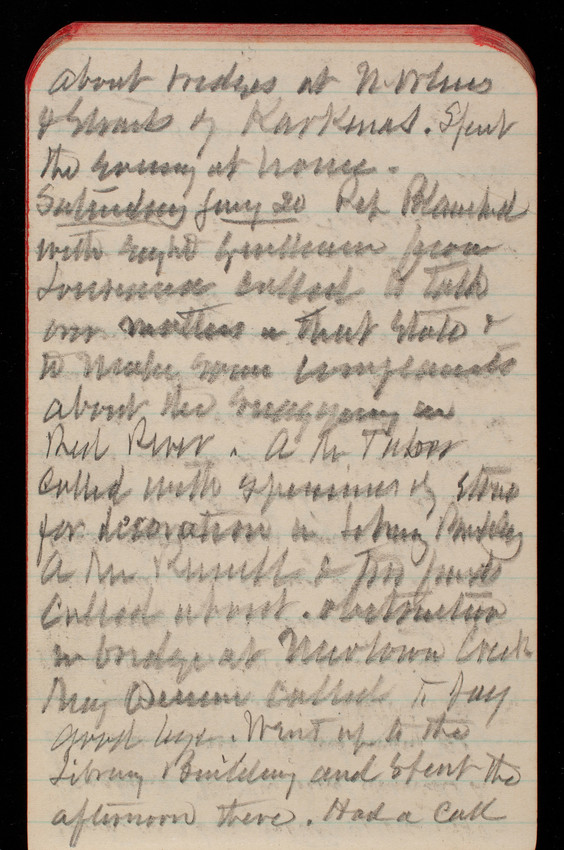 about bridges at N. Orleans
& Straits of Karkinas. Spent
the evening at home.
Saturday Jany 20 Rep Blanchard
with eight gentlemen from
Louisiana called to talk
over matters in that State &
to make some complaints
about the snagging in
Red River. A Mr Tabor
called with specimens of stone
for decoration in Library Building
A Mr Russell & two friends
called about obstruction
in bridge at Newtown Creek
called to say
good bye. Went up to the
Library Building and spent the
afternoon there. Had a call